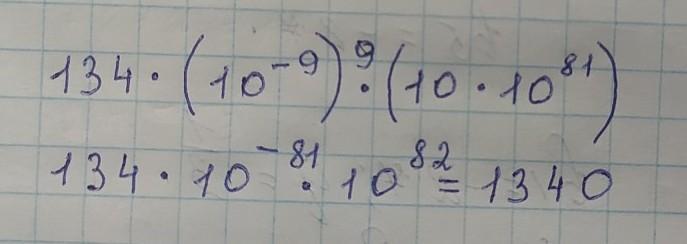 134 · (10⁻⁹)⁹ · (10 · 10⁸¹)
134 · 10⁻⁸¹ · 10⁸² = 1340